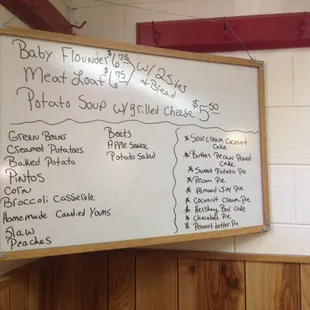 Baby Flounder $6.75
Meat Loaf $6.75
w/ 2 Sides
+ Bread
Potato Soup w/ grilled Cheese $5.50
Green Beans
Creamed Potatoes
Baked Potato
Pintos
Corn
Broccoli Casserole
Homemade Candied Yams
Slaw
Peaches
Beets
Apple Sauce
Potato Salad
* Sour Cream Coconut Cake
* Butter Pecan Pound Cake
* Sweet Potato Pie
* Pecan Pie
* Almond Joy Pie
* Coconut Cream Pie
* Hershey Bar Cake
* Chocolate Pie
* Peanut butter Pie